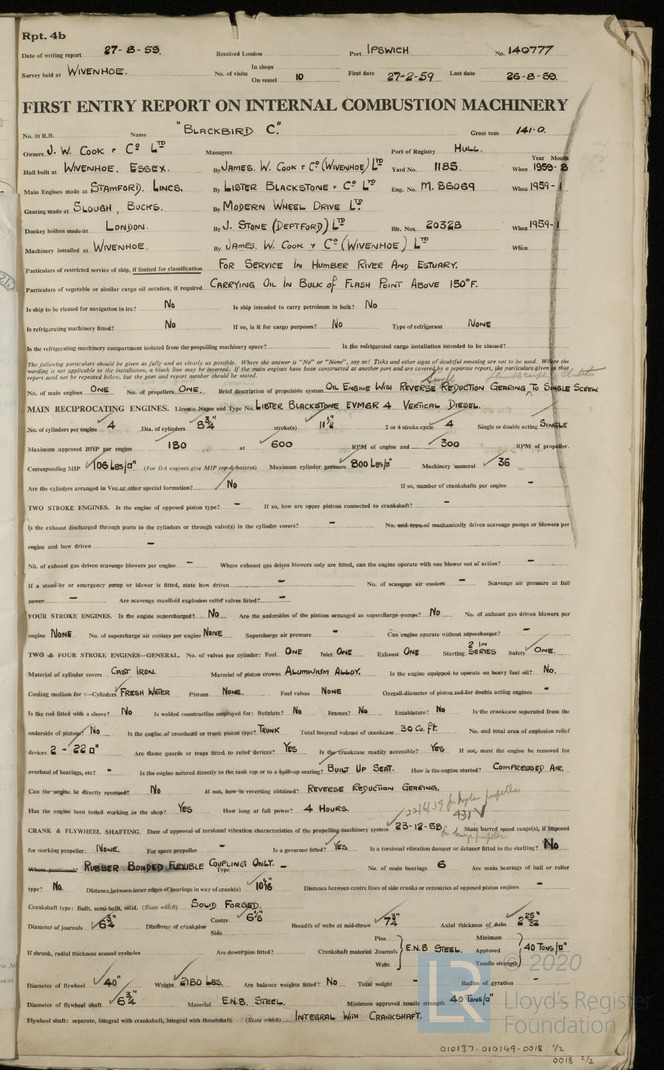 Rpt. 4b
Date of writing report 27-8-59. Received London Port IPSWICH No. 140777
Survey held at WIVENHOE. No. of visits In shops On vessel 10 First date 27-2-59 Last date 26-8-59.
FIRST ENTRY REPORT ON INTERNAL COMBUSTION MACHINERY
No. in R.B. Name "BLACKBIRD C." Gross tons 141.0.
Owners J. W. COOK & Co LTD Managers Port of Registry HULL.
Year Month
Hull built at WIVENHOE. ESSEX. By JAMES. W. COOK & Co (WIVENHOE) LTD Yard No. 1185. When 1959-8
Main Engines made at STAMFORD. LINCS. By LISTER BLACKSTONE & Co LTD Eng. No. M. 86069 When 1959-1
Gearing made at SLOUGH, BUCKS. By MODERN WHEEL DRIVE LTD.
Donkey boilers made at LONDON. By J. STONE (DEPTFORD) LTD Blr. Nos. 20328 When 1959-1
Machinery installed at WIVENHOE. By JAMES. W. COOK & Co (WIVENHOE) LTD When
Particulars of restricted service of ship, if limited for classification FOR SERVICE IN HUMBER RIVER AND ESTUARY.
Particulars of vegetable or similar cargo oil notation, if required CARRYING OIL IN BULK of FLASH POINT ABOVE 150°F.
Is ship to be classed for navigation in ice? No Is ship intended to carry petroleum in bulk? No
Is refrigerating machinery fitted? No If so, is it for cargo purposes? No Type of refrigerant NONE
Is the refrigerating machinery compartment isolated from the propelling machinery space? Is the refrigerated cargo installation intended to be classed?
The following particulars should be given as fully and as clearly as possible. Where the answer is "No" or "None", say so! Ticks and other signs of doubtful meaning are not to be used. Where the
wording is not applicable to the installation, a black line may be inserted. If the main engines have been constructed at another port and are covered by a separate report, the particulars given in that
report need not be repeated below, but the port and report number should be stated.
No. of main engines ONE No. of propellers ONE. Brief description of propulsion system OIL ENGINE WITH REVERSE REDUCTION GEARING TO SINGLE SCREW
MAIN RECIPROCATING ENGINES. Licence Name and Type No. LISTER BLACKSTONE EVMGR 4 VERTICAL DIESEL.
No. of cylinders per engine 4 Dia. of cylinders 8 3/4" stroke(s) 11 1/2" 2 or 4 stroke cycle 4 Single or double acting SINGLE
Maximum approved BHP per engine 180 at 600 RPM of engine and 300 RPM of propeller.
Corresponding MIP 106 LBS/□" (For DA engines give MIP top & bottom) Maximum cylinder pressure 800 LBS/□" Machinery numeral 36
Are the cylinders arranged in Vee or other special formation? No If so, number of crankshafts per engine -
TWO STROKE ENGINES. Is the engine of opposed piston type? - If so, how are upper pistons connected to crankshaft? -
Is the exhaust discharged through ports in the cylinders or through valve(s) in the cylinder covers? - No. and type of mechanically driven scavenge pumps or blowers per
engine and how driven -
No. of exhaust gas driven scavenge blowers per engine - Where exhaust gas driven blowers only are fitted, can the engine operate with one blower out of action? -
If a stand-by or emergency pump or blower is fitted, state how driven - No. of scavenge air coolers - Scavenge air pressure at full
power - Are scavenge manifold explosion relief valves fitted? -
FOUR STROKE ENGINES. Is the engine supercharged? No Are the undersides of the pistons arranged as supercharge pumps? No No. of exhaust gas driven blowers per
engine NONE No. of supercharge air coolers per engine NONE Supercharge air pressure - Can engine operate without supercharger? -
TWO & FOUR STROKE ENGINES—GENERAL. No. of valves per cylinder: Fuel ONE Inlet ONE Exhaust ONE Starting 2 IN SERIES Safety ONE.
Material of cylinder covers CAST IRON. Material of piston crowns ALUMINIUM ALLOY. Is the engine equipped to operate on heavy fuel oil? No.
Cooling medium for:—Cylinders FRESH WATER Pistons NONE. Fuel valves NONE Overall diameter of piston rod for double acting engines -
Is the rod fitted with a sleeve? No Is welded construction employed for: Bedplate? No Frames? No Entablature? No Is the crankcase separated from the
underside of pistons? No Is the engine of crosshead or trunk piston type? TRUNK Total internal volume of crankcase 30 Cu. ft. No. and total area of explosion relief
devices 2 - 22 □" Are flame guards or traps fitted to relief devices? YES Is the crankcase readily accessible? YES If not, must the engine be removed for
overhaul of bearings, etc? - Is the engine secured directly to the tank top or to a built-up seating? BUILT UP SEAT. How is the engine started? COMPRESSED AIR.
Can the engine be directly reversed? No If not, how is reversing obtained? REVERSE REDUCTION GEARING.
Has the engine been tested working in the shop? YES How long at full power? 4 HOURS.
CRANK & FLYWHEEL SHAFTING. Date of approval of torsional vibration characteristics of the propelling machinery system 23-12-58 State barred speed range(s), if imposed
for working propeller NONE. For spare propeller - Is a governor fitted? YES Is a torsional vibration damper or detuner fitted to the shafting? No
Where positioned? RUBBER BONDED FLEXIBLE COUPLING ONLY. Type - No. of main bearings 6 Are main bearings of ball or roller
type? No. Distance between inner edges of bearings in way of crank(s) 10 1/8" Distance between centre lines of side cranks or eccentrics of opposed piston engines -
Crankshaft type: Built, semi-built, solid. (State which) SOLID FORGED.
Diameter of journals 6 3/4" Diameter of crankpins Centre 6 1/8" Side Breadth of webs at mid-throw 7 3/4" Axial thickness of webs 2 25/32"
If shrunk, radial thickness around eyeholes Are dowel pins fitted? Crankshaft material Pins Journals Webs E.N.8 STEEL. Minimum Approved Tensile strength 40 TONS/□"
Diameter of flywheel 40" Weight 2180 LBS. Are balance weights fitted? No Total weight - Radius of gyration -
Diameter of flywheel shaft 6 3/4" Material E.N.8. STEEL. Minimum approved tensile strength 40 TONS/□"
Flywheel shaft: separate, integral with crankshaft, integral with thrustshaft. (State which) INTEGRAL WITH CRANKSHAFT.
© 2020
Lloyd's Register
Foundation
010137-010149-0018 1/2
0018 2/2